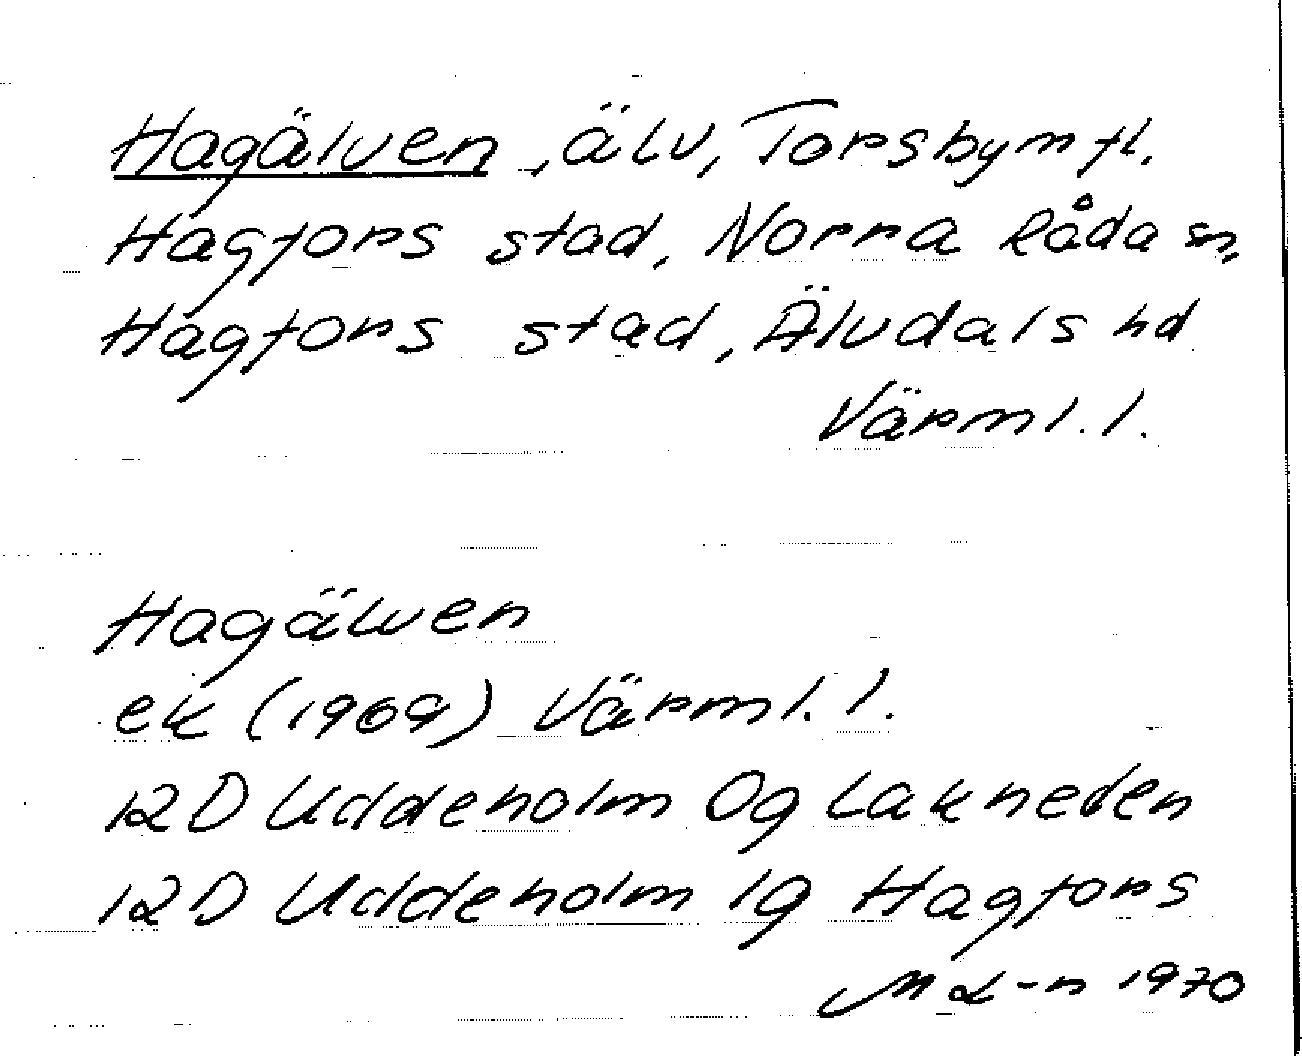 Hagälven, älv, Torsby m fl.
Hagfors stad, Norra Råda sn,
Hagfors stad, Älvdals hd
Värml. l.
Hagälven
ek (1969) Värml. l.
12D Uddeholm 0g Lakheden
12D Uddeholm 1g Hagfors
M L-n 1970